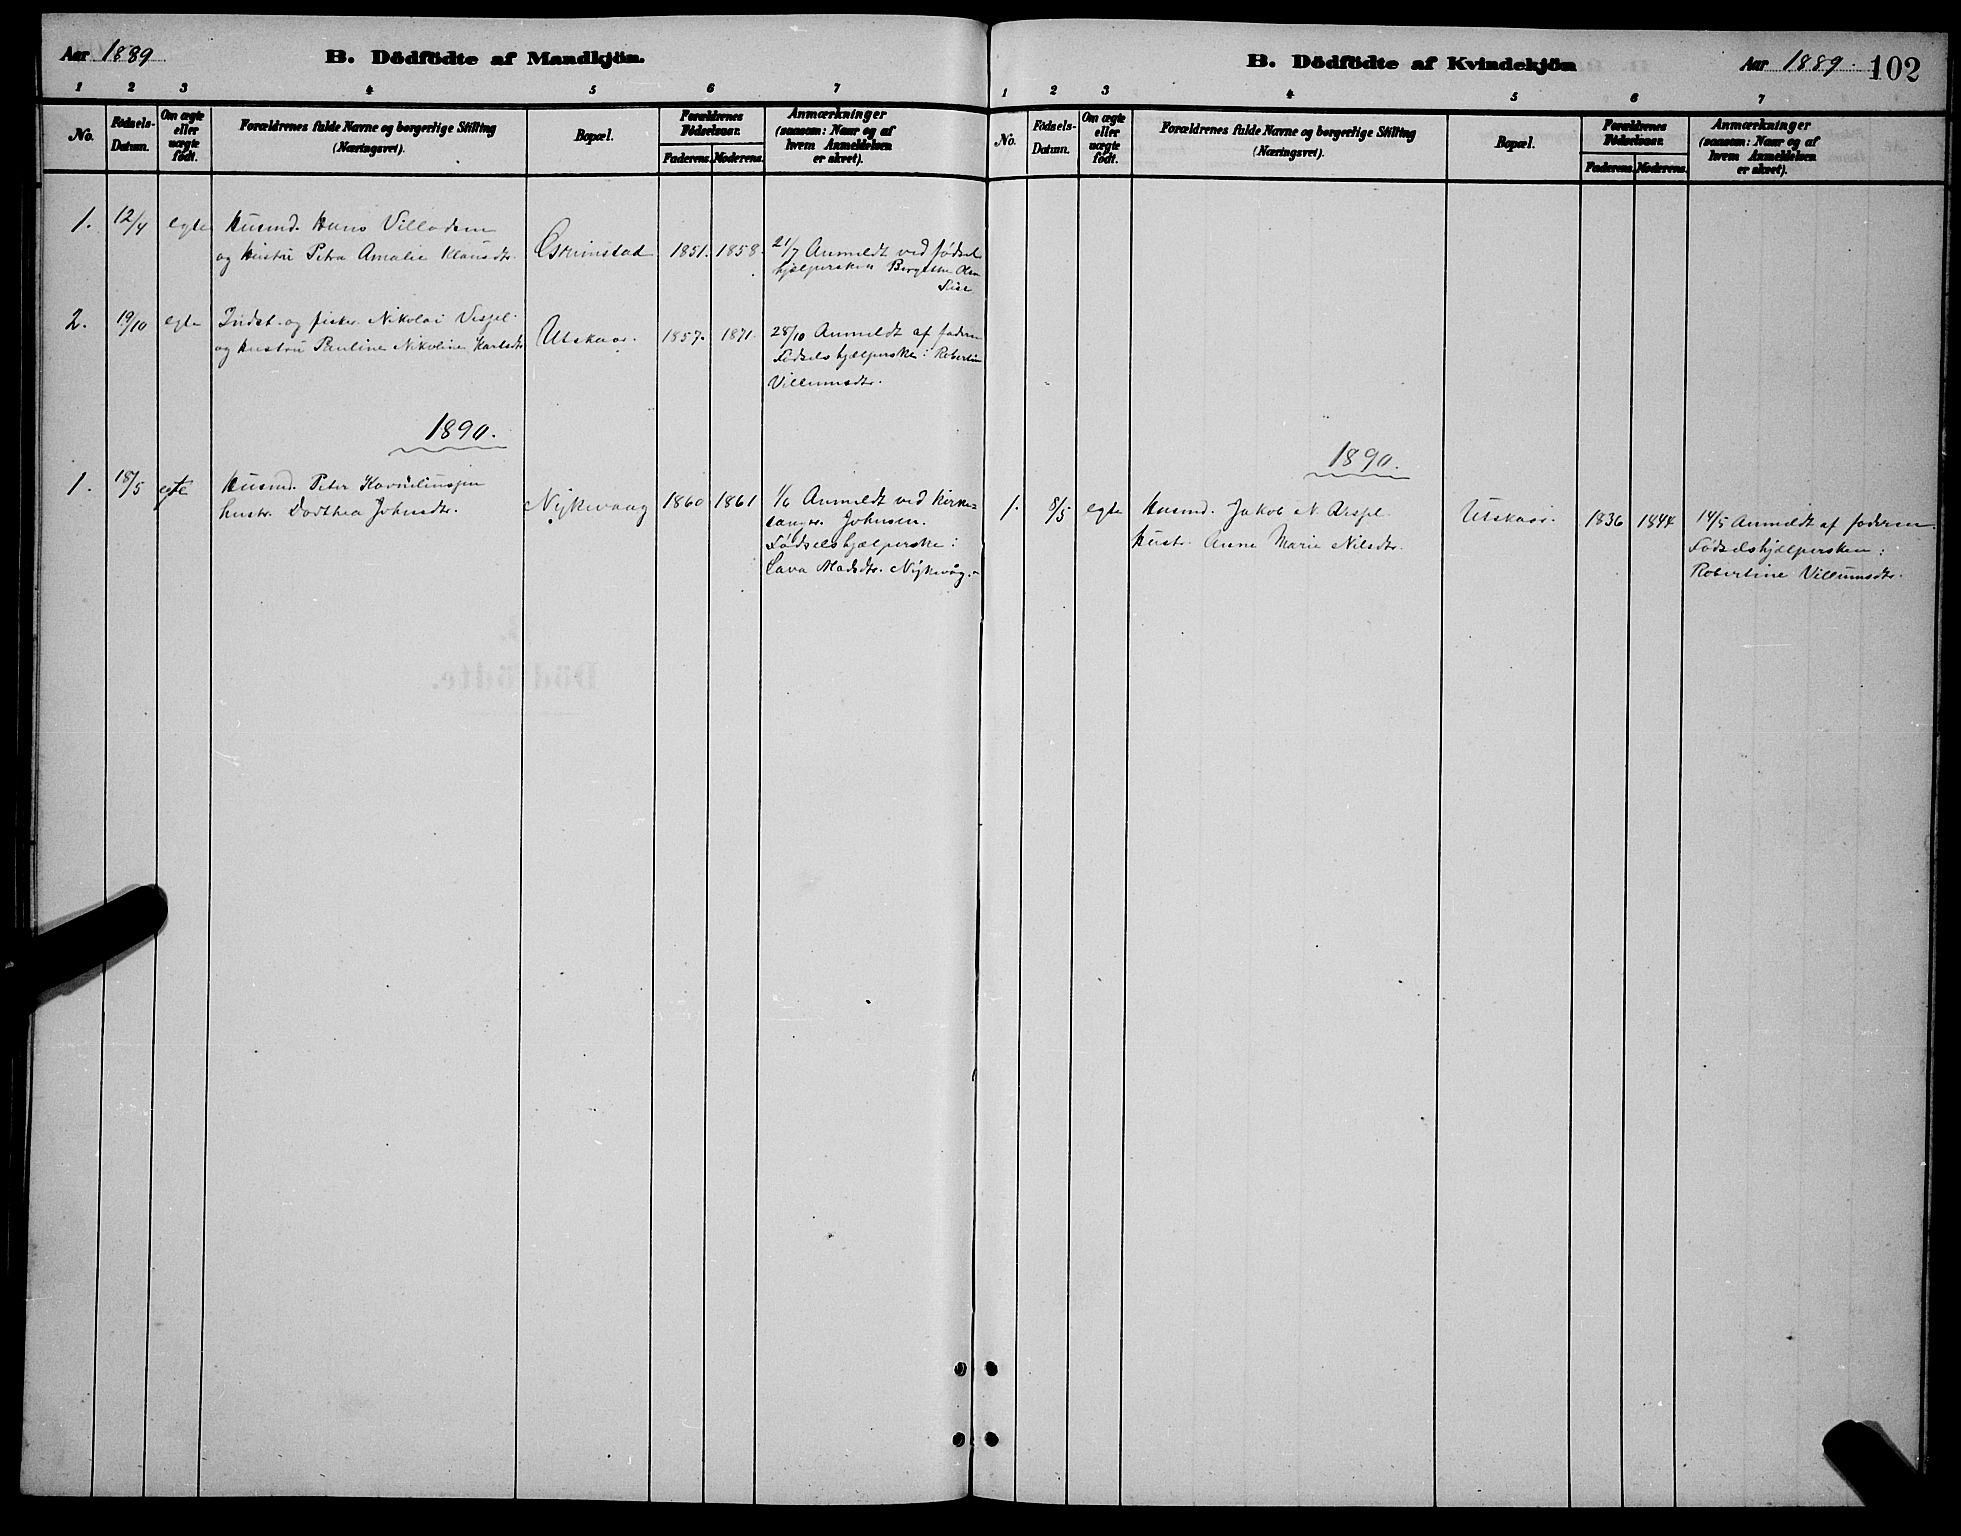 Aar 1889
B. Dödfödte af Mandkjön.
1 2 3 4 5 6 7
No.
Födsels-Datum.
Om ægte eller uægte födt.
Forældrenes fulde Navne og borgerlige Stilling (Næringsvei).
Bopæl.
Forældrenes Födselsaar.
Faderens. Moderens.
Anmærkninger (saasom: Naar og af hvem Anmeldelsen er skeet).
1. 12/4 egte Husmd. Hans Villadsen
og hustru Petra Amalie Klausdtr. Grimstad 1851. 1858. 21/7 Anmeldt ved fødsels
hjælpersken Olsen
2. 19/10 egte Indst. og fisker Nikolai
og hustru Pauline Nikoline Karlsdtr. Utskaar. 1857. 1871. 28/10 Anmeldt af faderen
Fødselshjælperske: Robertine
Villumsdtr.
1890.
1. 18/5 egte Husmd. Peter
hustr. Dorthea Johnsdtr. Nykvaag 1860 1861 1/6 Anmeldt ved kirke=
sanger Johnsen.
Fødselshjælperske:
Madsdtr. Nykvåg.
B. Dödfödte af Kvindekjön
Aar 1889. 102
1 2 3 4 5 6 7
No.
Födsels-Datum.
Om ægte eller uægte födt.
Forældrenes fulde Navne og borgerlige Stilling (Næringsvei).
Bopæl.
Forældrenes Födselsaar.
Faderens. Moderens.
Anmærkninger (saasom: Naar og af hvem Anmeldelsen er skeet).
1890.
1. 8/5 egte Husmd. Jakob N.
hustr. Anne Marie Nilsdtr. Utskaar. 1836 1844 14/5 Anmeldt af faderen.
Fødselshjælpersken:
Robertine Villumsdtr.